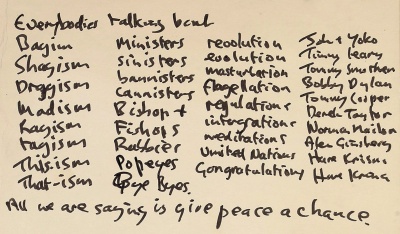 Everybodies talking bout
Bagism
Shagism
Dragism
Madism
Ragism
Tagism
This ism
That-ism
Ministers
sinisters
bannisters
Cannisters
Bishop +
Fishops
Rabbies
Popeyes
Bye Byes.
revolution
evolution
masturbation
flagellation
regulations
integrations
meditations
United Nations
Congratulations
John + Yoko
Timmy Leary
Tommy Smothers
Bobby Dylan
Tommy Cooper
Derek Taylor
Norman Mailer
Alen Ginsberg
Hare Krisna
Hare Krsna
All we are saying is give peace a chance.